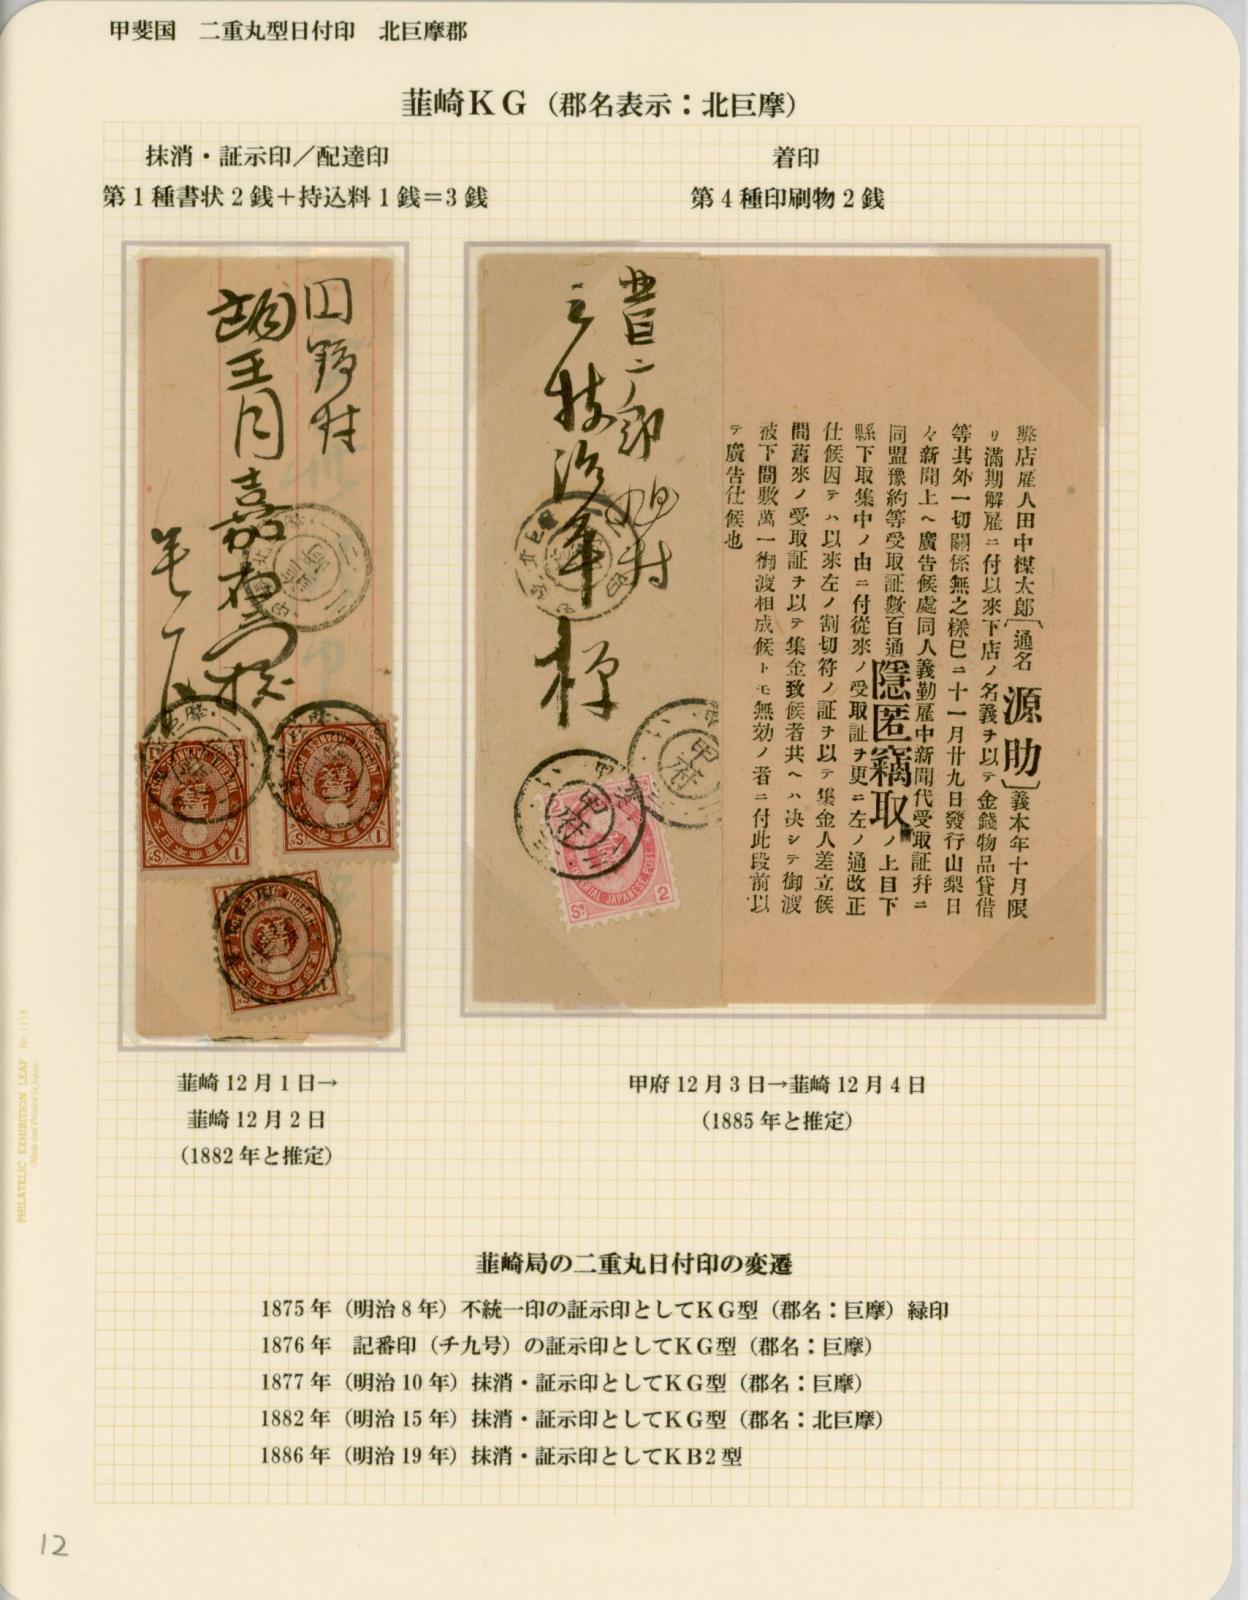 甲斐国　二重丸型日付印　北巨摩郡
韮崎KG（郡名表示：北巨摩）
抹消・証示印／配達印
第1種書状2銭＋持込料1銭＝3銭
着印
第4種印刷物2銭
田野村
望月嘉右衛門様
甲府
甲府
IMPERIAL JAPANESE POST
2
Sn
弊店雇人田中楳太郎〔通名源助〕義本年十月限
リ滿期解雇ニ付以來下店ノ名義ヲ以テ金錢物品貸借
等其外一切關係無之様巳ニ十一月廿九日發行山梨日
々新聞上ヘ廣告候處同人義勤雇中新聞代受取証幷ニ
同盟豫約等受取証數百通隱匿竊取ノ上目下
縣下取集中ノ由ニ付從來ノ受取証ヲ更ニ左ノ通改正
仕候因テハ以來左ノ割切符ノ証ヲ以テ集金人差立候
間舊來ノ受取証ヲ以テ集金致候者共ヘハ决シテ御渡
被下間敷萬一御渡相成候トモ無効ノ者ニ付此段前以
テ廣告仕候也
韮崎12月1日→
韮崎12月2日
(1882年と推定)
甲府12月3日→韮崎12月4日
(1885年と推定)
韮崎局の二重丸日付印の変遷
1875年（明治8年）不統一印の証示印としてKG型（郡名：巨摩）緑印
1876年　記番印（チ九号）の証示印としてKG型（郡名：巨摩）
1877年（明治10年）抹消・証示印としてKG型（郡名：巨摩）
1882年（明治15年）抹消・証示印としてKG型（郡名：北巨摩）
1886年（明治19年）抹消・証示印としてKB2型
PHILATELIC EXHIBITION LEAF No.1118
(Made and Printed in Japan)
12